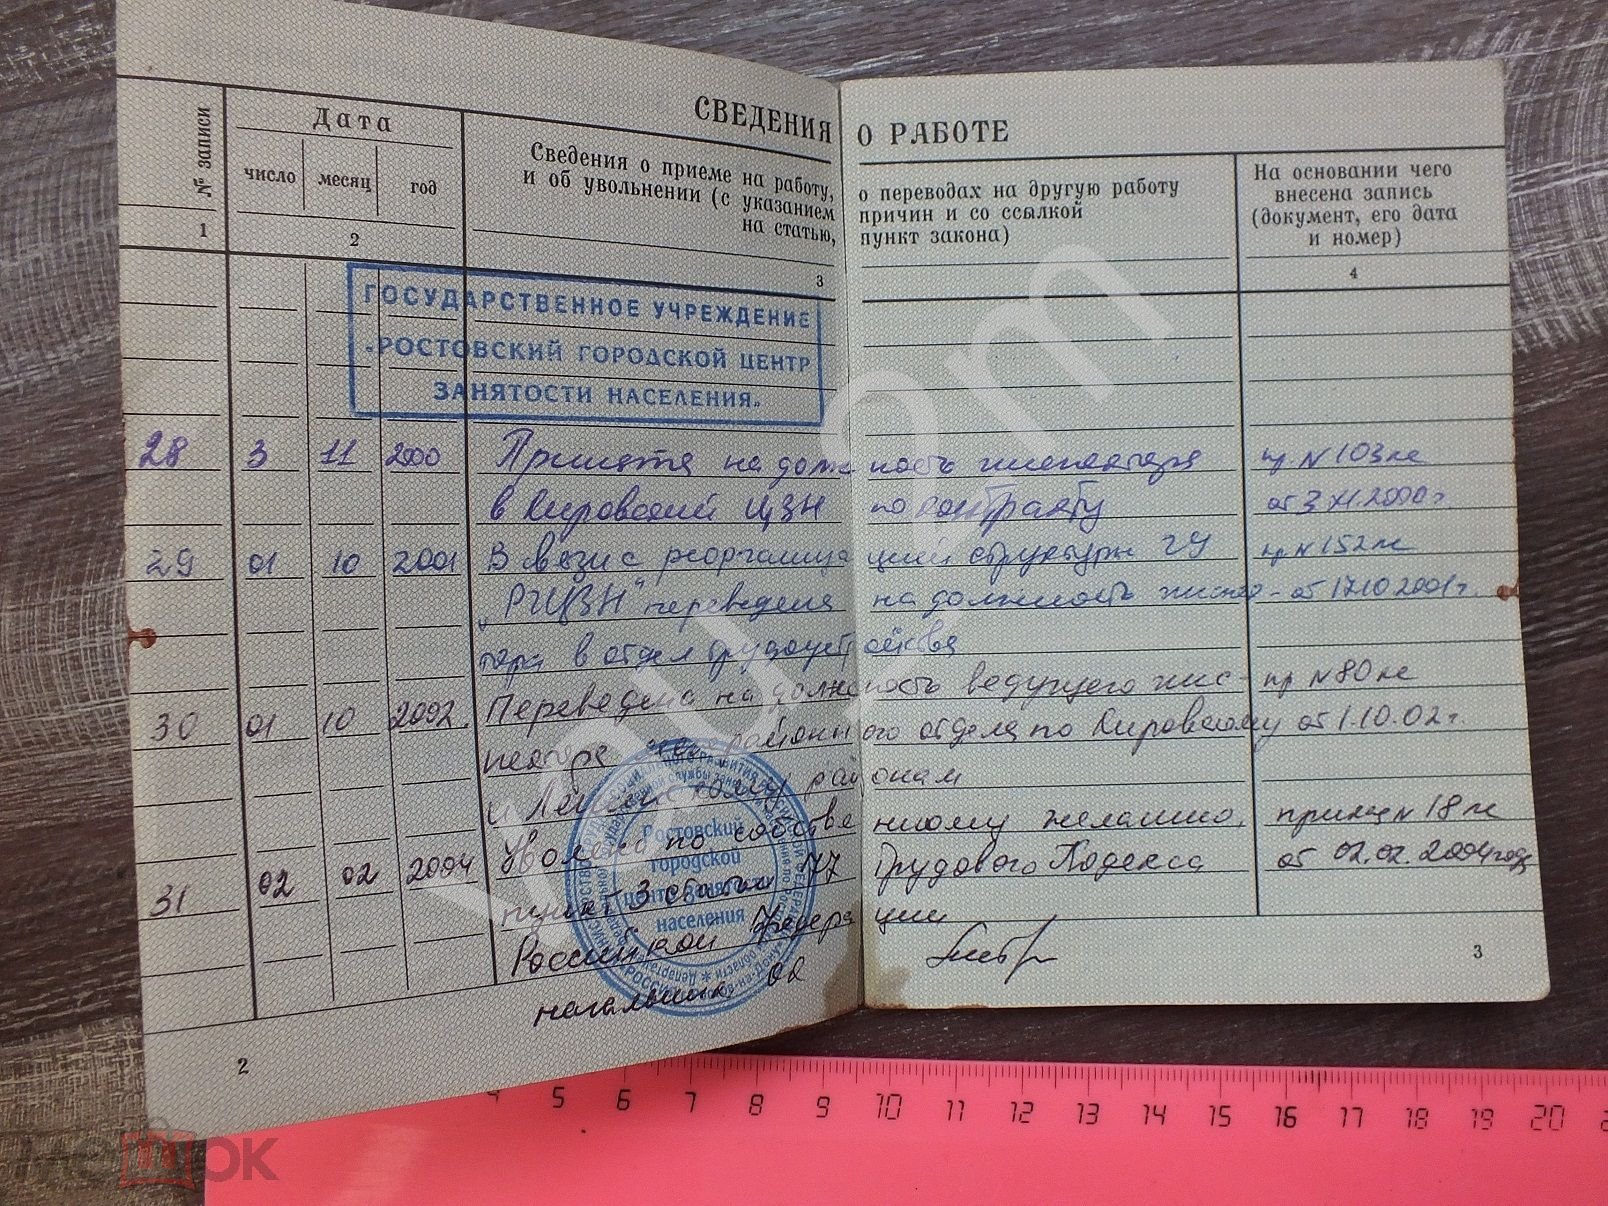 СВЕДЕНИЯ О РАБОТЕ
№ записи
Дата
число месяц год
Сведения о приеме на работу, о переводах на другую работу
и об увольнении (с указанием причин и со ссылкой
на статью, пункт закона)
На основании чего
внесена запись
(документ, его дата
и номер)
1 2 3 4
ГОСУДАРСТВЕННОЕ УЧРЕЖДЕНИЕ
«РОСТОВСКИЙ ГОРОДСКОЙ ЦЕНТР
ЗАНЯТОСТИ НАСЕЛЕНИЯ»
28 3 11 2000 Принята на должность инспектора пр N 103 лс
в Кировский ЦЗН по контракту от 3 XI.2000г.
29 01 10 2001 В связи с реорганизацией структуры ГУ пр N 152 лс
"РГЦЗН" переведена на должность инспек- от 17.10 2001г.
тора в отдел трудоустройства
30 01 10 2002 Переведена на должность ведущего инс- пр N 80 лс
пектора районного отдела по Кировскому от 1.10.02г.
и Ленинскому районам
31 02 02 2004 Уволена по собственному желанию, приказ N 18 лс
пункт 3 статьи 77 Трудового Кодекса от 02.02.2004 года
Российской Федерации
начальник ОК
Ростовский
городской
центр занятости
населения
2
3
4 5 6 7 8 9 10 11 12 13 14 15 16 17 18 19 20
мешок